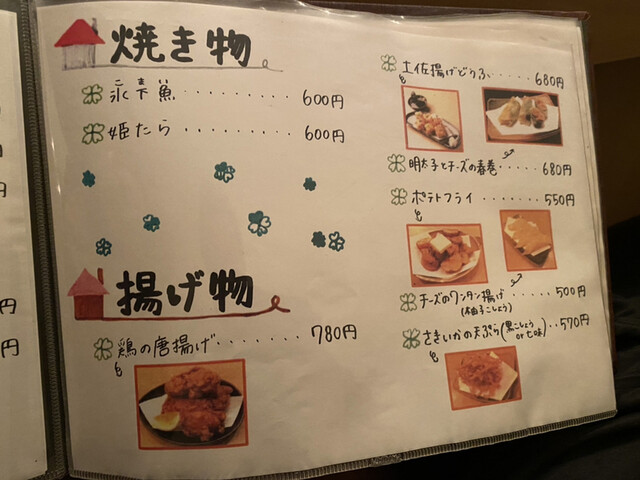 焼き物
氷下魚 ········· 600円
姫たら ········· 600円
揚げ物
鶏の唐揚げ ······· 780円
土佐揚げどうふ ····· 680円
明太子とチーズの春巻 ····· 680円
ポテトフライ ······· 550円
チーズのワンタン揚げ ····· 500円
(柚子こしょう)
さきいかの天ぷら(黒こしょう or 七味) ·· 570円
円
円
円